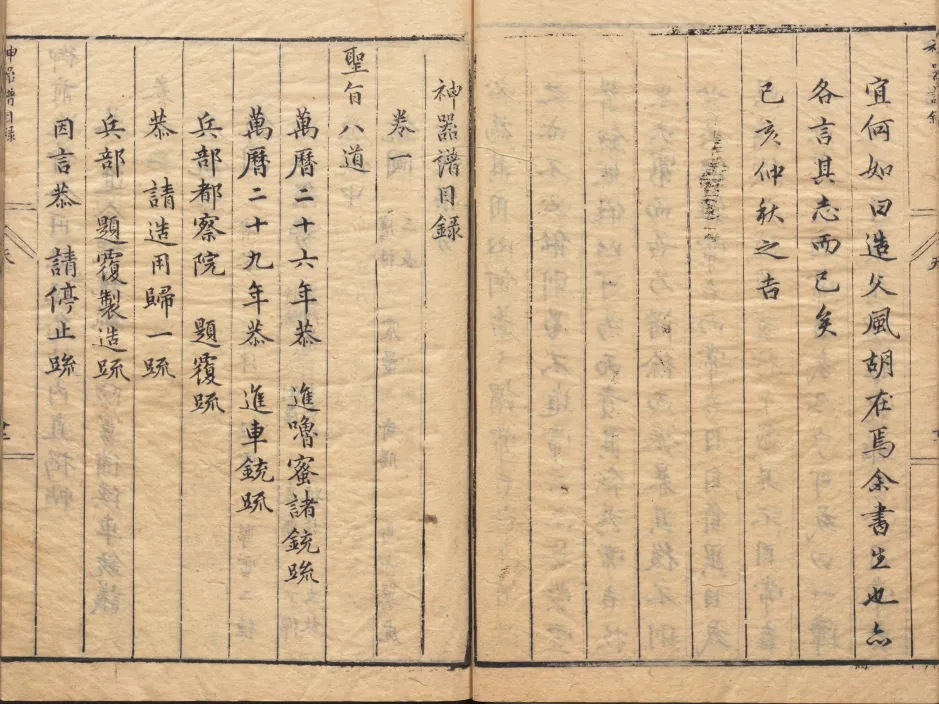 宜何如曰造父風胡在焉余書生也亦
各言其志而已矣
己亥仲秋之吉
神器譜目録
卷
聖旨八道
萬曆二十六年恭　進嚕蜜諸銃䟽
萬曆二十九年恭　進車銃䟽
兵部都察院　題覆䟽
恭　請造用歸一䟽
兵部　題覆製造䟽
因言恭　請停止䟽
神器譜目録